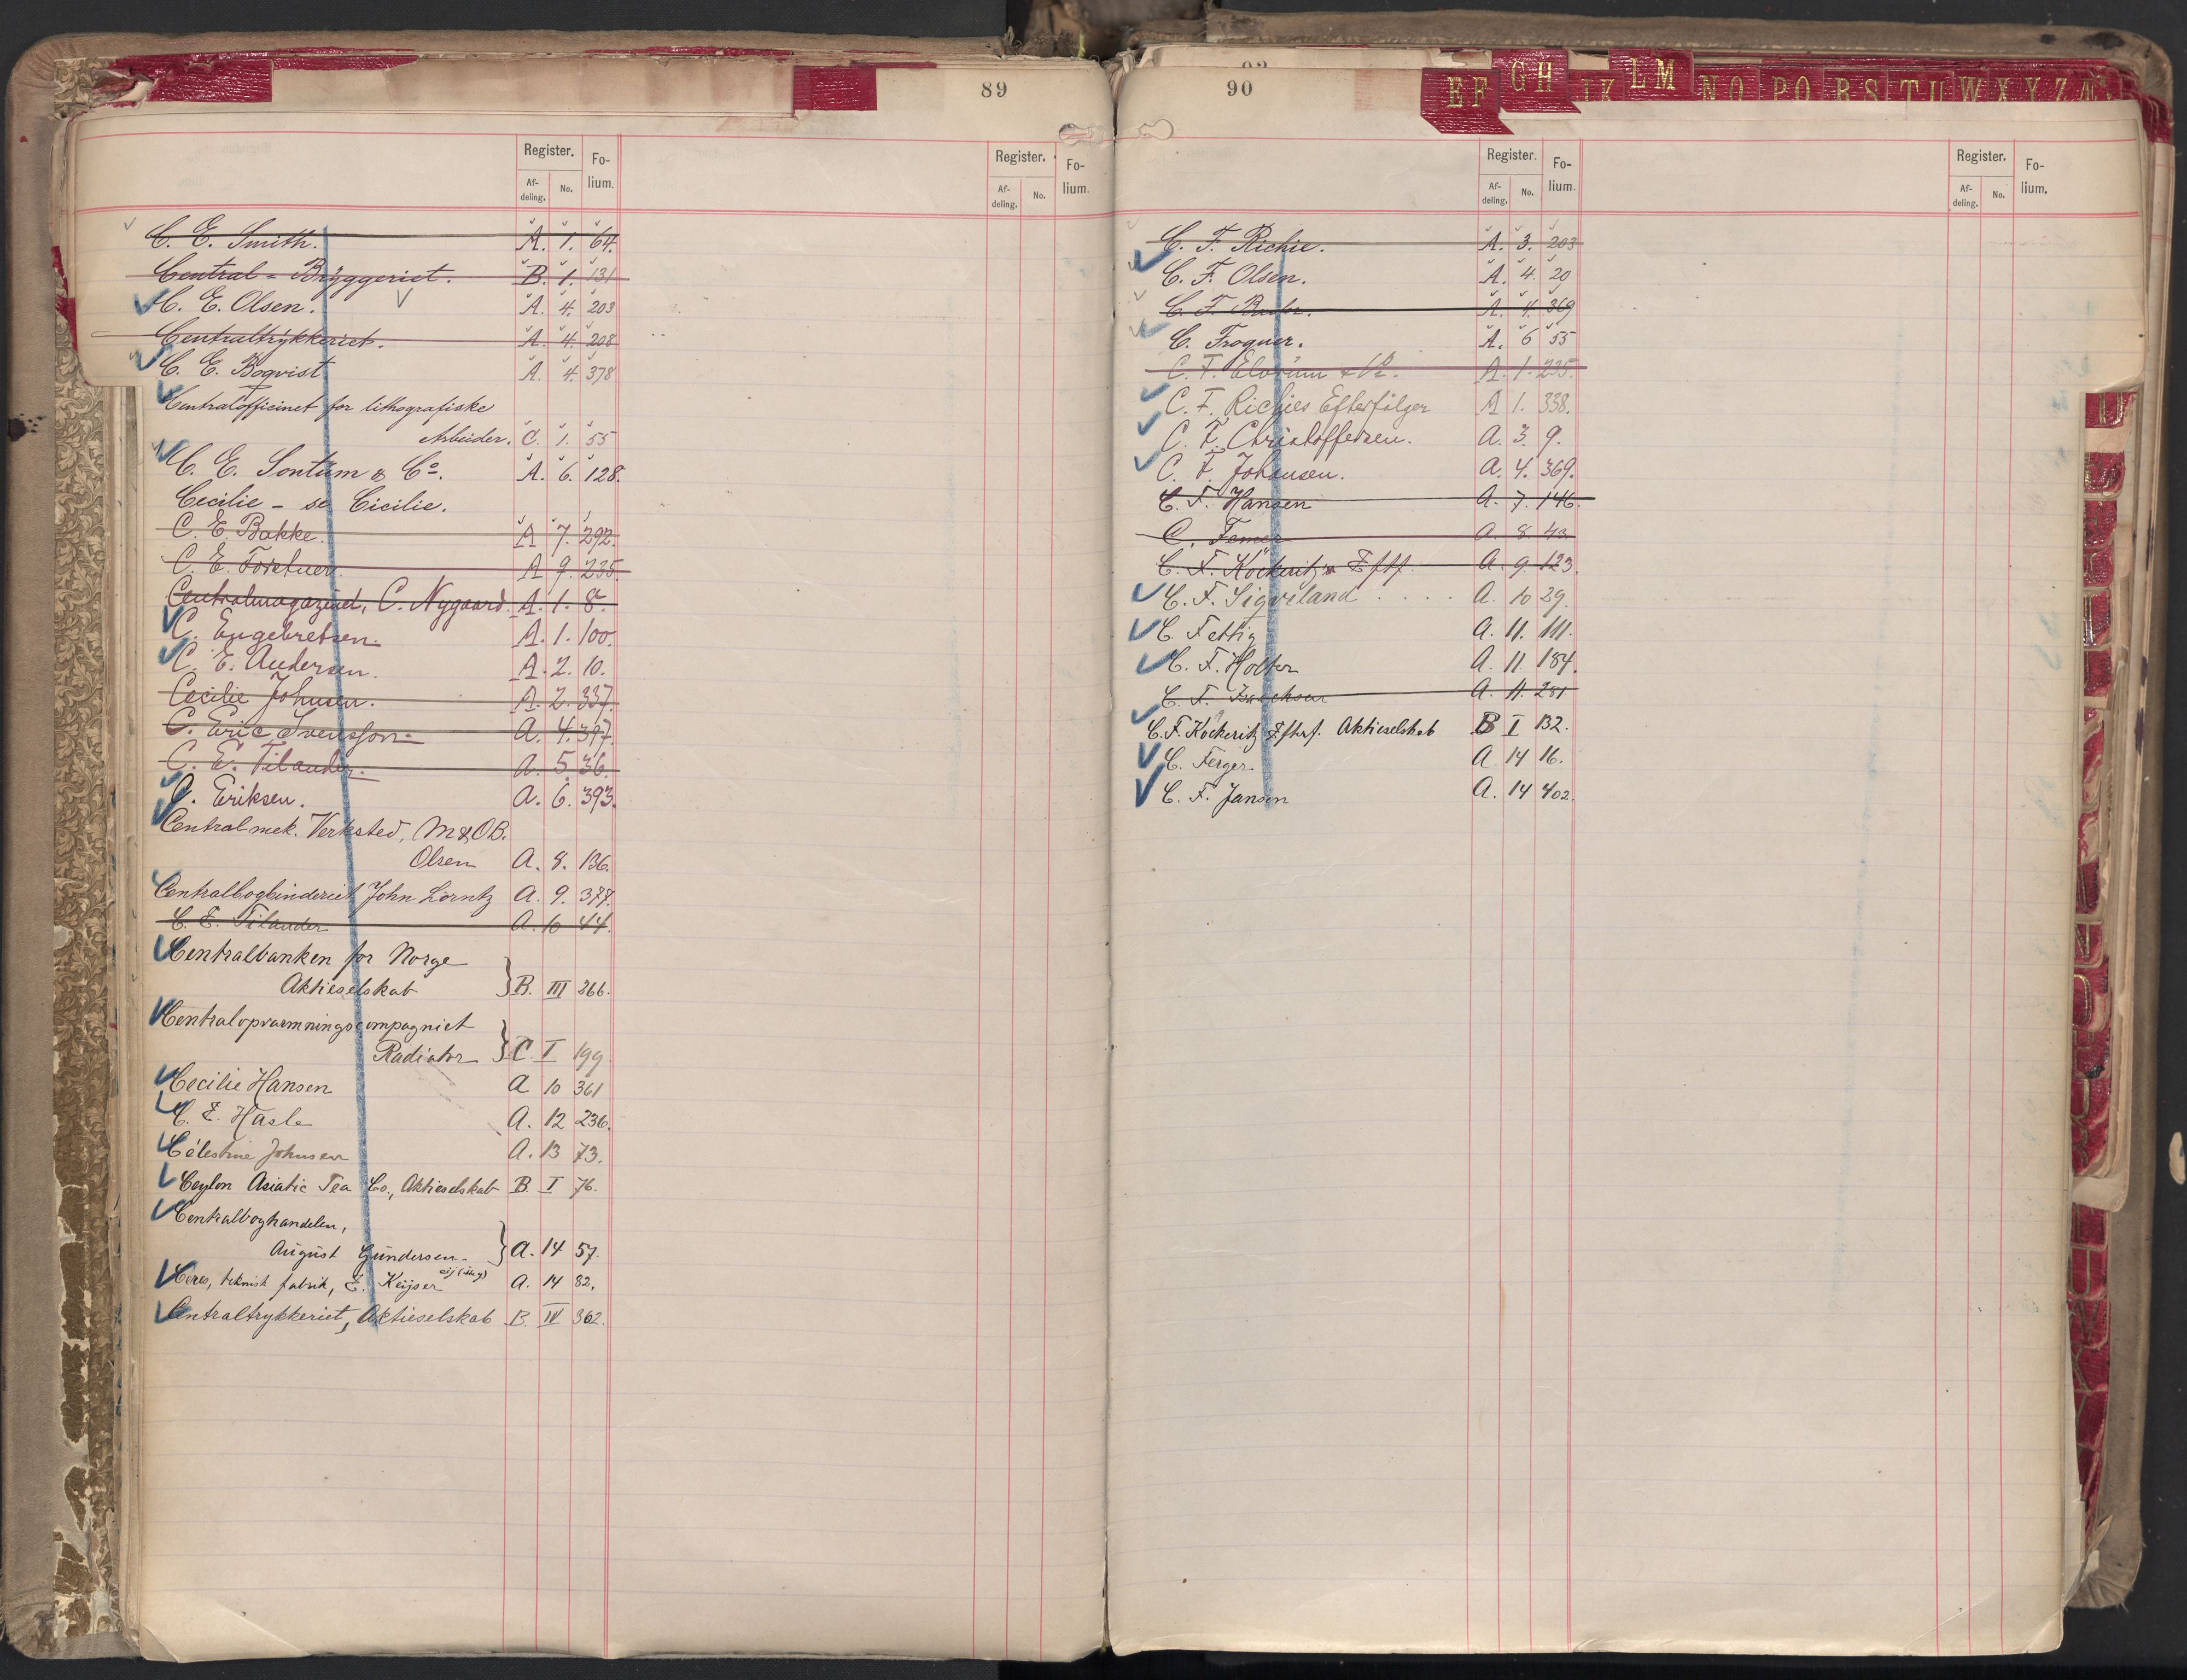 89
Register. Fo-
lium.
Af-
deling. No.
Register. Fo-
lium.
Af-
deling. No.
C. E. Smith. A. 1. 64.
Central-Bryggeriet. B. 1. 131
C. E. Olsen. A. 4. 203
Centraltrykkeriet. A. 4. 208
C. E. Boqvist A. 4. 378
Centralofficinet for lithografiske
Arbeider. C. 1. 55
C. E. Sontum & Co. A. 6. 128.
Cecilie - se Cicilie.
C. E. Bakke. A 7. 292.
C. E. A 9. 235.
Centralmagazinet, C. Nygaard. A. 1. 8.
C. Engebretsen. A. 1. 100.
C. E. Andersen. A. 2. 10.
Cecilie Johnsen. A. 2. 337.
C. Eric Svensson. A. 4. 397.
C. E. Tilander. A. 5. 36.
C. Eriksen. A. 6. 393.
Central mek. Verksted, M & O.B.
Olsen A. 8. 136.
Centralbogbinderiet John Lorntz A. 9. 377.
C. E. Tilander A. 10 44.
Centralbanken for Norge
Aktieselskab } B. III 266.
Centralopvarmningscompagniet
Radiator } C. I 199
Cecilie Hansen A 10 361
C. E. Hasle A. 12 236.
Célestine Johnsen A. 13 73.
Ceylon Asiatic Tea Co., Aktieselskab B. I 76.
Centralboghandelen,
August Gundersen. } A. 14 57.
Ceres, teknisk fabrik, E. Keijser A. 14 82.
Centraltrykkeriet, Aktieselskab B. IV 362.
90
EF GH JK LM NO PQ RS TU WX YZ
Register. Fo-
lium.
Af-
deling. No.
Register. Fo-
lium.
Af-
deling. No.
C. F. Richie. A. 3. 203
C. F. Olsen. A. 4. 20
C. F. A. 4. 369
C. Frogner. A. 6 55
C. F. A. 1. 235.
C. F. Richies Efterfölger A 1. 338.
C. F. Christoffersen. A. 3. 9.
C. F. Johansen. A. 4. 369.
C. F. Hansen A. 7. 146.
C. A. 8. 43
C. F. Köckeritz Eftf. A. 9. 123.
C. F. Sigveland . . . . A. 10 29.
C. Fettig A. 11. 111.
C. F. Holter A. 11 184.
C. F. Isachsen A. 11. 281
C. F. Köckeritz Efterf. Aktieselskab B I 132.
C. Ferger. A. 14 16.
C. F. Jansen A. 14 402.